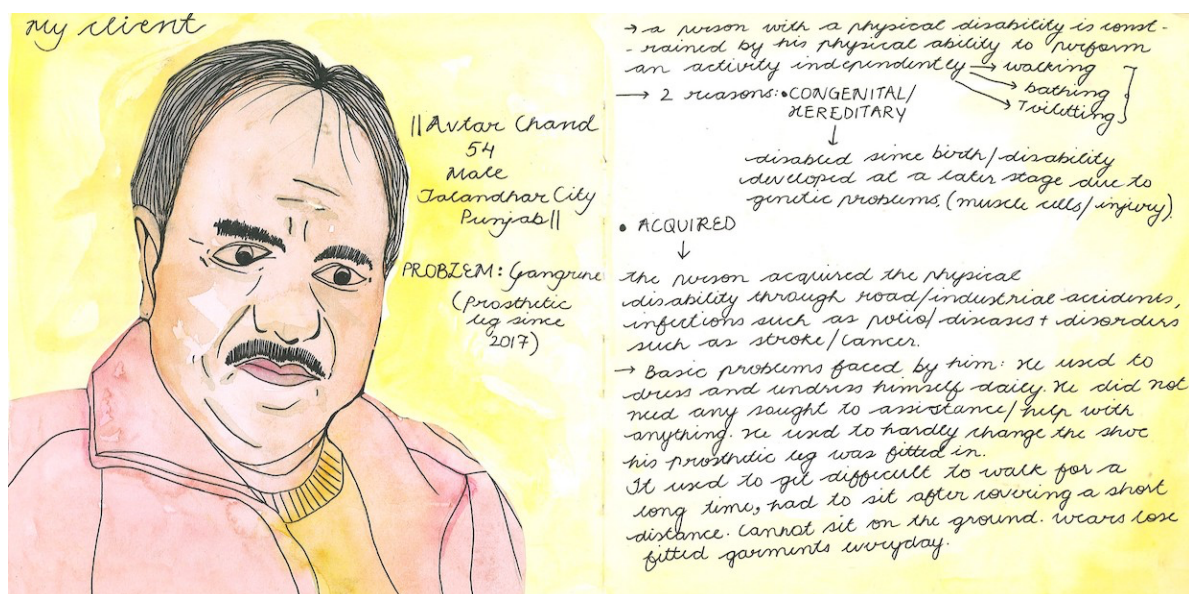 My client
||Avtar Chand
54
Male
Jalandhar City
Punjab||
PROBLEM: Gangrene
(prosthetic
leg since
2017)
→ a person with a physical disability is const-
-rained by his physical ability to perform
an activity independently → walking
→ bathing
→ Toiletting
→ 2 reasons: • CONGENITAL/
HEREDITARY
↓
disabled since birth/disability
developed at a later stage due to
genetic problems. (muscle cells/injury)
• ACQUIRED
↓
the person acquired the physical
disability through road/industrial accidents,
infections such as polio/diseases + disorders
such as stroke/cancer.
→ Basic problems faced by him: He used to
dress and undress himself daily. He did not
need any sought to assistance/help with
anything. He used to hardly change the shoe
his prosthetic leg was fitted in.
It used to get difficult to walk for a
long time, had to sit after covering a short
distance. Cannot sit on the ground. wears lose
fitted garments everyday.